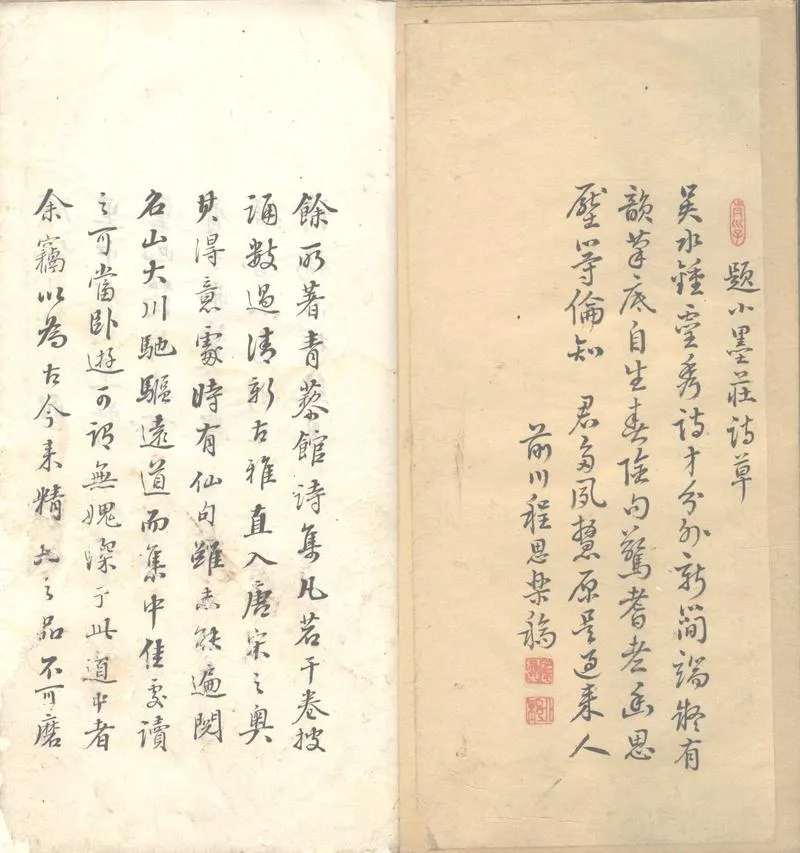 題小墨莊詩草
吴水鍾靈秀詩才分外新簡端凝有
韻筆底自生春險句驚耆老幽思
壓等倫知 君多夙慧原是過来人
前川程思樂稿
餘所著青藜館詩集凡若干卷披
誦數過清新古雅直入唐宋之奧
其得意處時有仙句雖未能遍閱
名山大川馳驅遠道而集中佳處讀
之可當卧遊可謂無媿深于此道中者
余竊以為古今来精之品不可磨